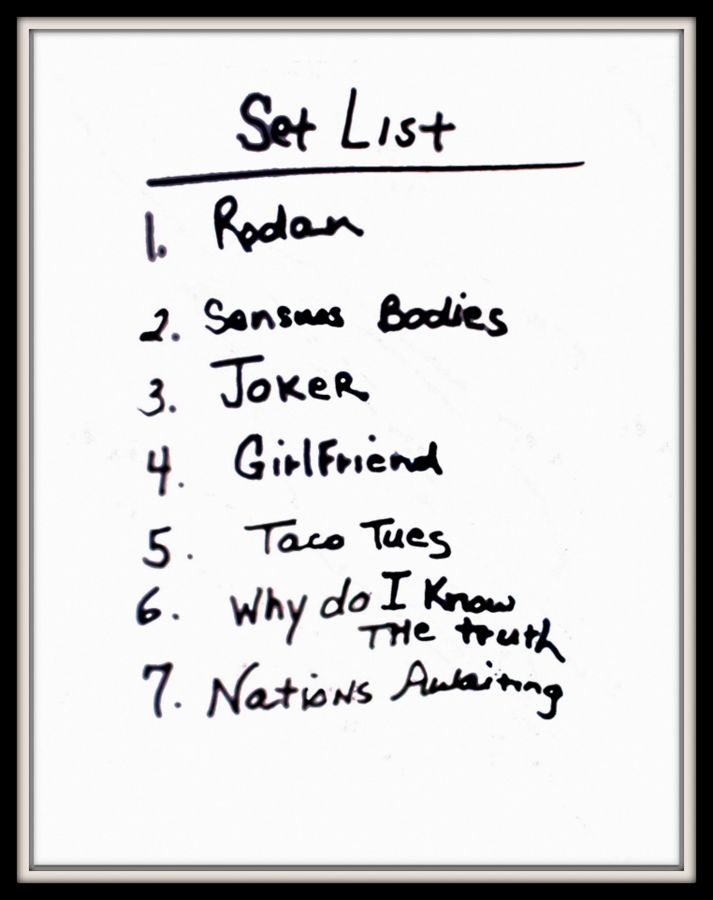 Set List
1. Rodan
2. Bodies
3. JOKER
4. GirlFriend
5. Taco Tues
6. Why do I Know
THe truth
7. Nations Awaiting